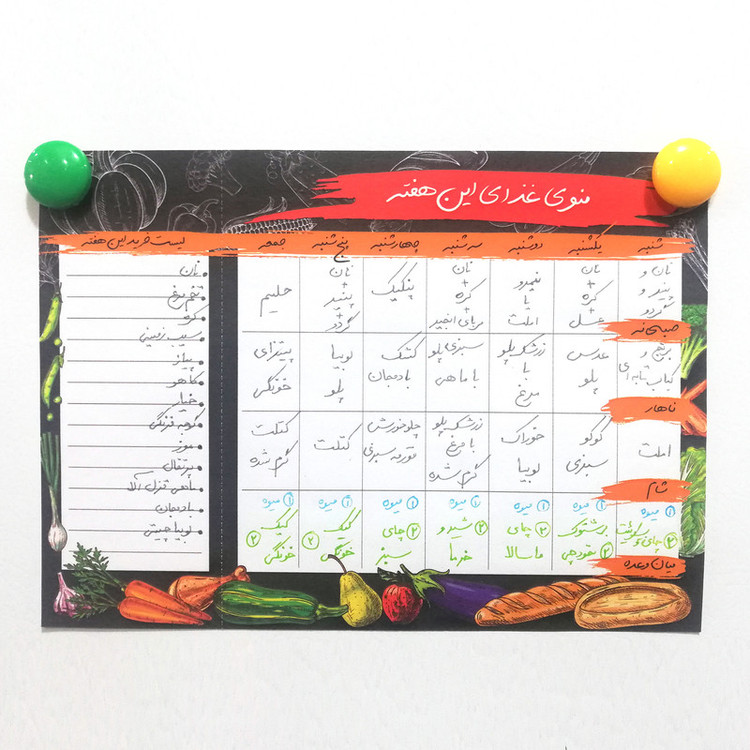 منوی غذای این هفته
شنبه یکشنبه دوشنبه سه شنبه چهارشنبه پنج شنبه جمعه
لیست خرید این هفته
صبحانه
نان و
پنیر و
گردو
نان
+
کره
+
عسل
نیمرو
یا
املت
نان
+
کره
+
مربای انجیر
پنکیک
نان
+
پنیر
+
گردو
حلیم
ناهار
برنج و
کباب تابه ای
عدس
پلو
زرشک پلو
با
مرغ
سبزی پلو
با ماهی
کشک
بادمجان
لوبیا
پلو
پیتزای
خونگی
شام
املت
کوکو
سبزی
خوراک
لوبیا
زرشک پلو
با مرغ
گرم شده
چلوخورش
قورمه سبزی
کتلت
کتلت
گرم شده
میان وعده
۱ میوه
۲ چای و بیسکوئیت
۱ میوه
۲ نخودچی
۱ میوه
۲ چای
ماسالا
۱ میوه
۲ شیر و
خرما
۱ میوه
۲ چای
سبز
۱ میوه
۲ کیک
خونگی
۱ میوه
۲ کیک
خونگی
نان
تخم مرغ
کره
سیب زمینی
پیاز
کاهو
خیار
گوجه فرنگی
موز
پرتقال
ماهی قزل آلا
بادمجان
لوبیا چیتی